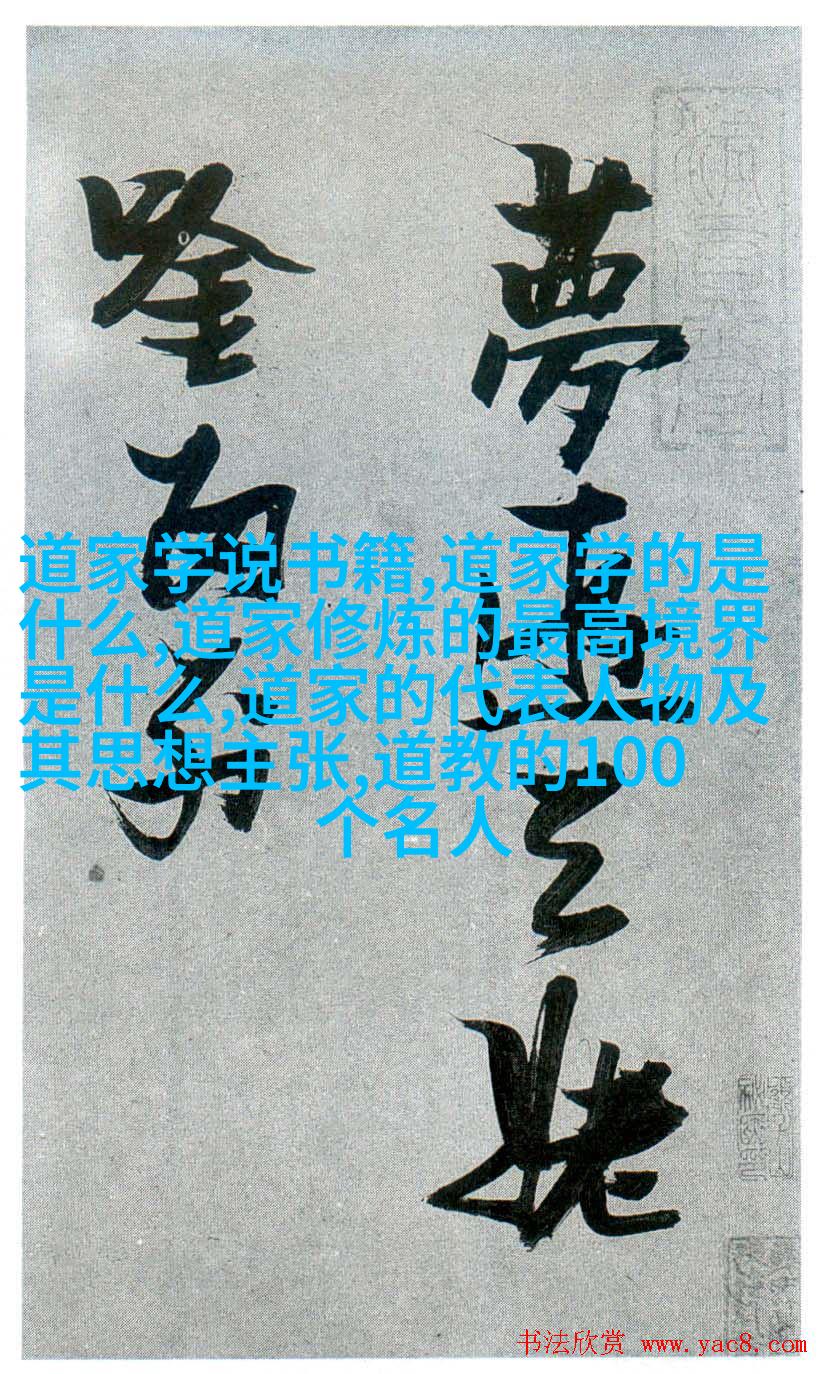 夢遊天姥
唫留别
道家学说书籍,道家学的是
什么,道家修炼的最高境界
是什么,道家的代表人物及
其思想主张,道教的100
个名人
书法欣赏 www.yac8.com